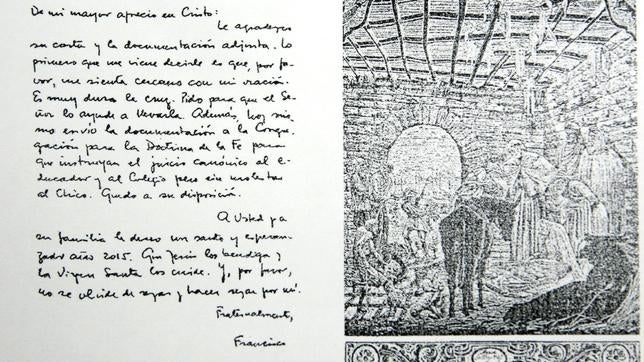 De mi mayor aprecio en Cristo:
Le agradezco
su carta y la documentación adjunta. Lo
primero que me viene decirle es que, por fa-
vor, me sienta cercano con mi oración.
Es muy dura la cruz. Pido para que el Se-
ñor lo ayude a llevarla. Además, hoy mis-
mo envío la documentación a la Congre-
gación para la Doctrina de la Fe para
que instruyan el juicio canónico al E-
ducador y al Colegio pero sin molestar
al Chico. Quedo a su disposición.
A Usted y a
su familia le deseo un santo y esperan-
zador año 2015. Que Jesús los bendiga y
la Virgen Santa los cuide. Y, por favor,
no se olvide de rezar y hacer rezar por mí.
Fraternalmente,
Francisco